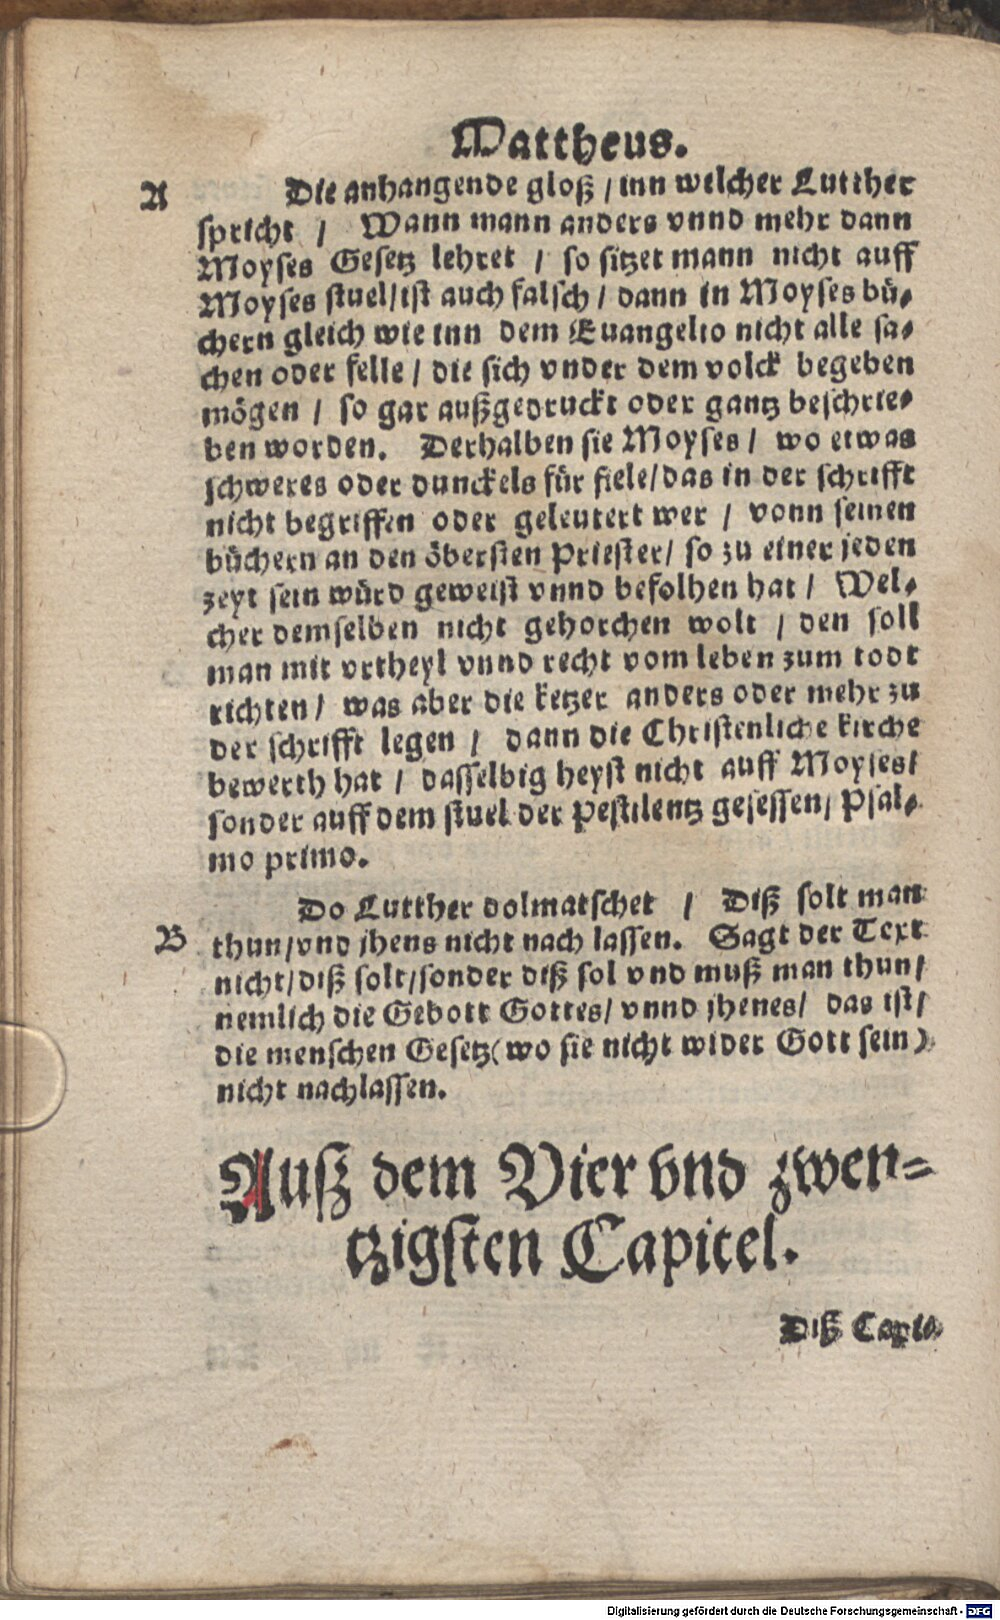 Mattheus.
A Die anhangende gloß / inn welcher Lutther
spricht / Wann mann anders vnnd mehr dann
Moyses Gesetz lehret / so sitzet mann nicht auff
Moyses stuel/ist auch falsch / dann in Moyses bü-
chern gleich wie inn dem Euangelio nicht alle sa-
chen oder felle / die sich vnder dem volck begeben
mögen / so gar außgedruckt oder gantz beschrie-
ben worden. Derhalben sie Moyses / wo etwas
schweres oder dunckels für fiele/das in der schrifft
nicht begriffen oder geleutert wer / vonn seinen
büchern an den öbersten Priester / so zu einer jeden
zeyt sein würd geweist vnnd befolhen hat / Wel-
cher demselben nicht gehorchen wolt / den soll
man mit vrtheyl vnnd recht vom leben zum todt
richten / was aber die ketzer anders oder mehr zu
der schrifft legen / dann die Christenliche kirche
bewerth hat / dasselbig heyst nicht auff Moyses/
sonder auff dem stuel der Pestilentz gesessen/ Psal-
mo primo.
Do Lutther dolmatschet / Diß solt man
B thun/vnd jhens nicht nach lassen. Sagt der Text
nicht/diß solt/sonder diß sol vnd muß man thun/
nemlich die Gebott Gottes/ vnnd jhenes/ das ist/
die menschen Gesetz(wo sie nicht wider Gott sein)
nicht nachlassen.
Auß dem Vier vnd zwen-
tzigsten Capitel.
Diß Capi-
Digitalisierung gefördert durch die Deutsche Forschungsgemeinschaft - DFG